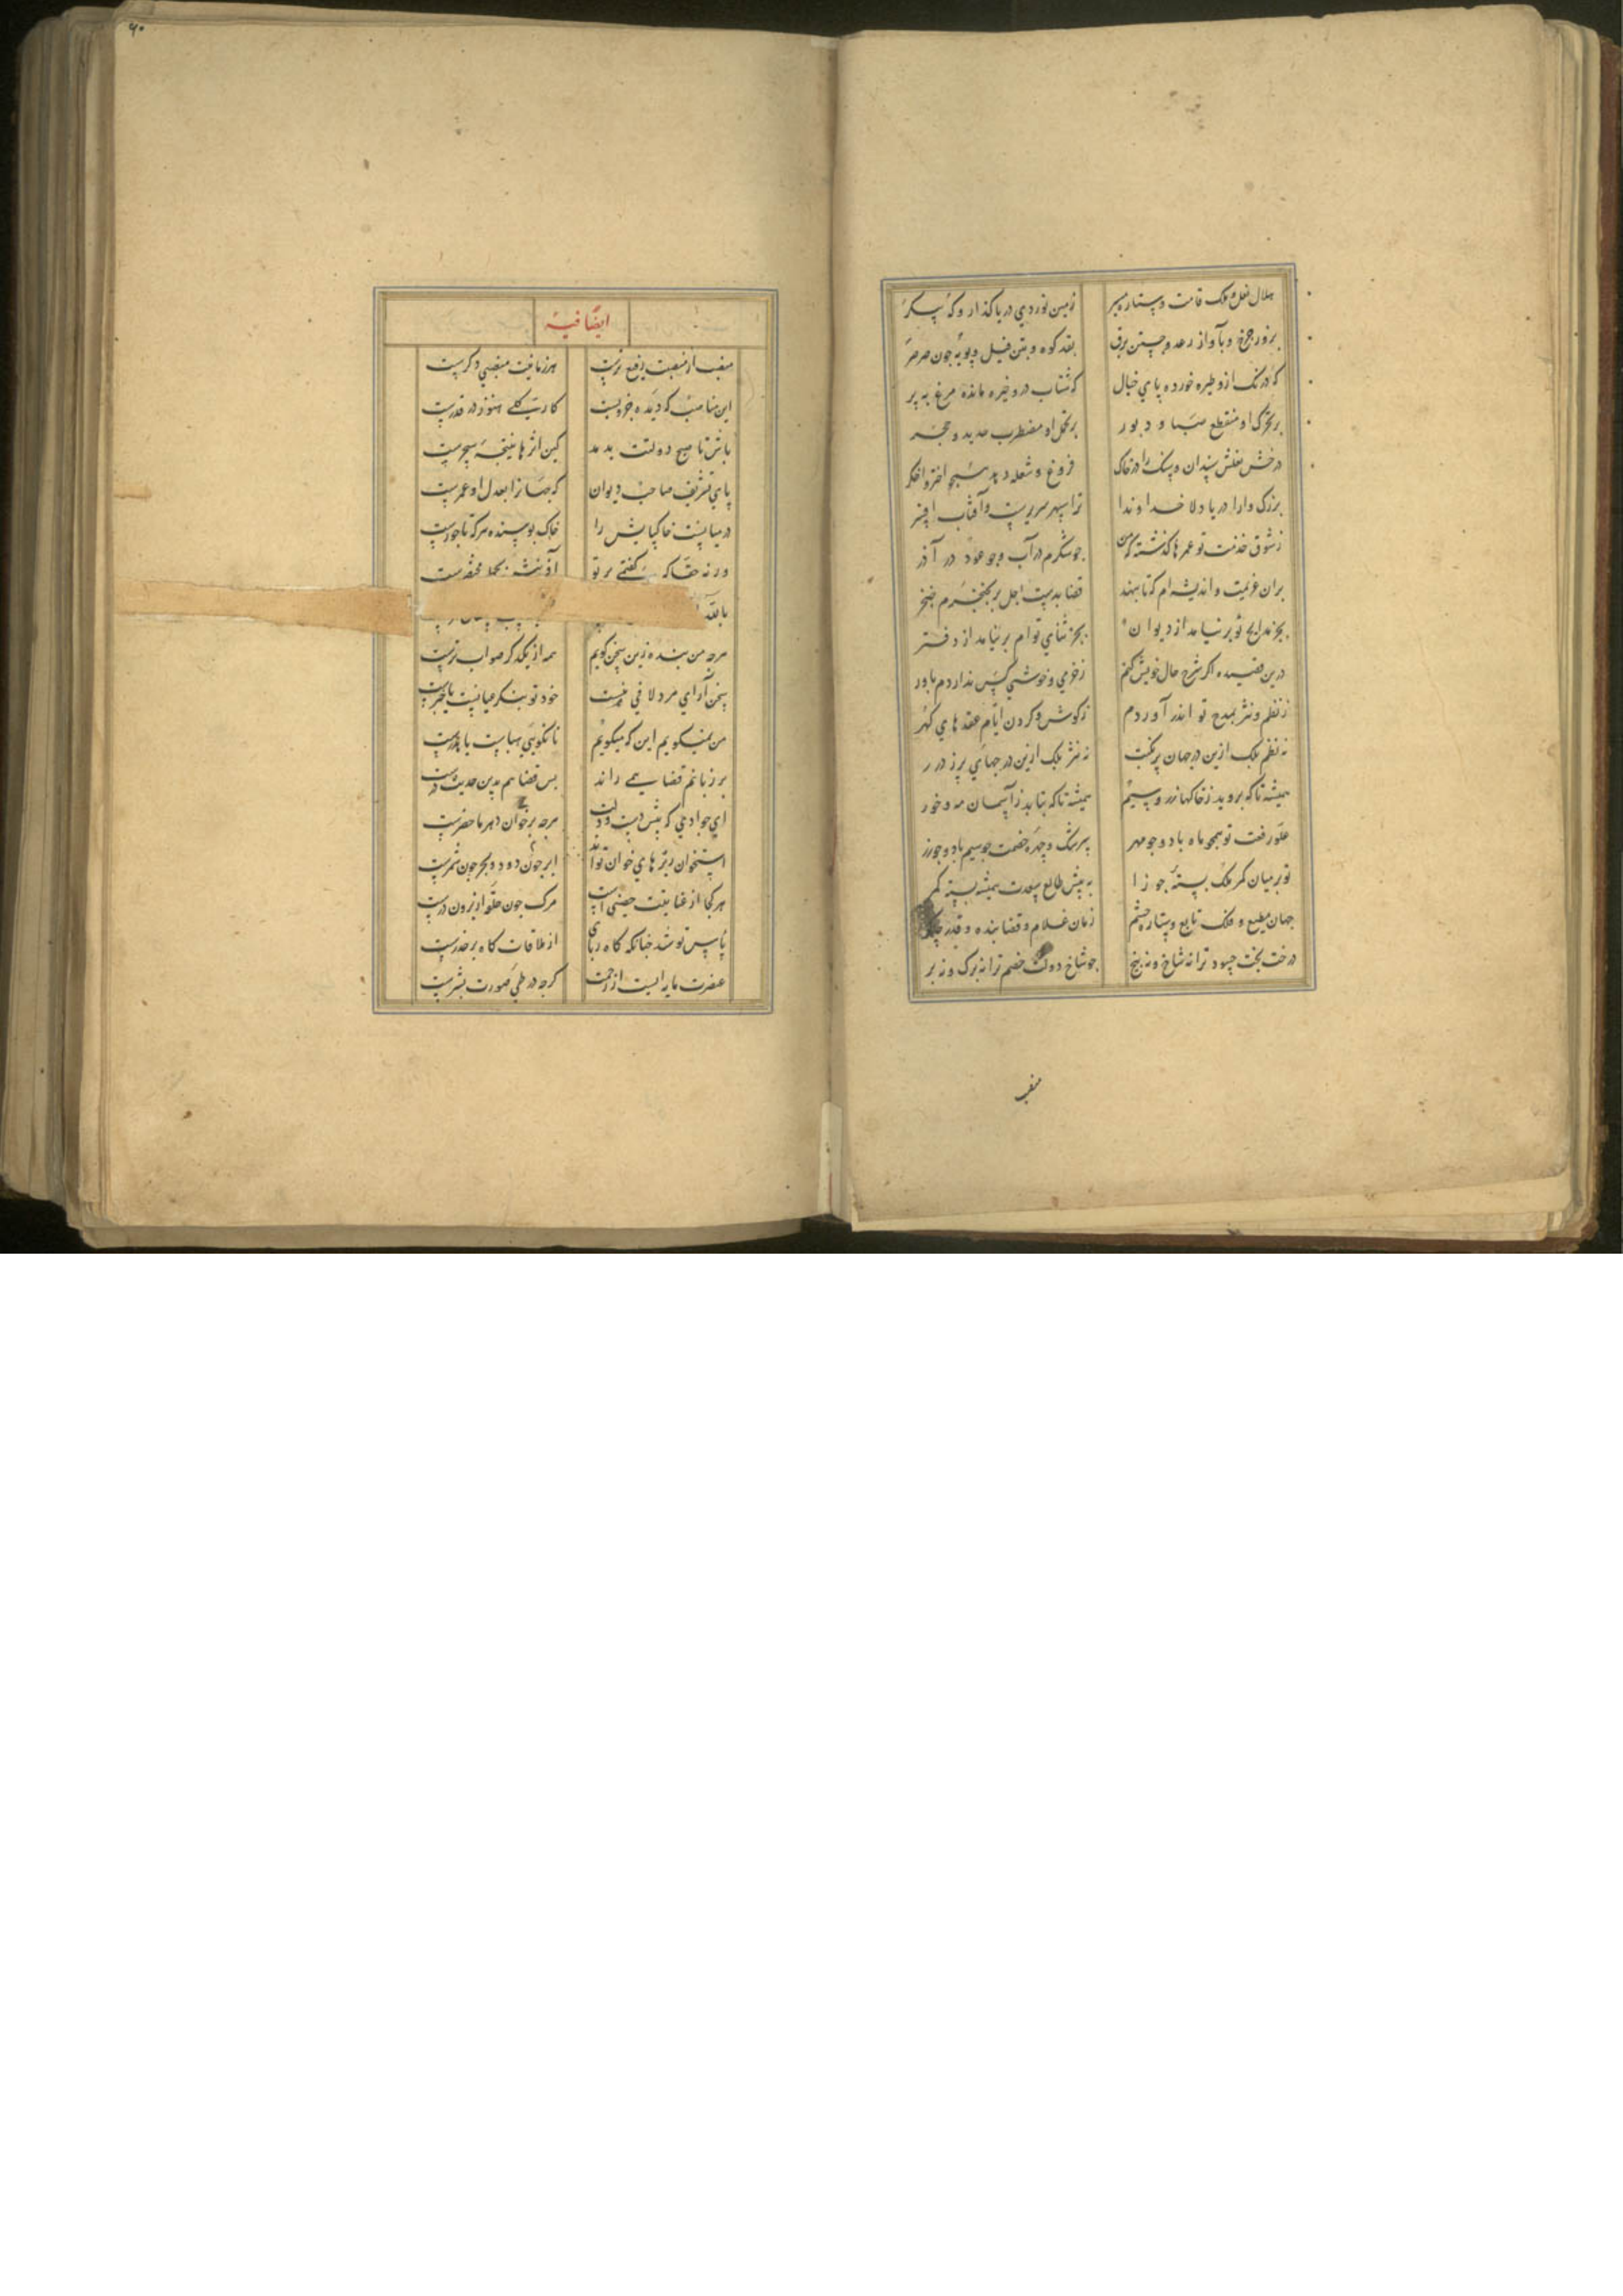 هلال نعل و فلک قامت و ستاره سیر زمین نوردی دریا گذار و که پیکر
بزور چرخ و بآواز رعد و جستن برق بقد کوه و بتن فیل و پویه چون صرصر
که درنک ازو طیره خورده پای خیال که شتاب درو خیره مانده مرغ به پر
بر تحرک او منقطع صبا و دبور بر تحمل او مضطرب حدید و حجر
درخش نعلش سندان و سنک را در خاک فروغ و شعله دهد شبه اختر و اخکر
بزرک وارا دریا دلا خداوندا ترا سپهر سریرست وآفتاب افسر
ز شوق خدمت تو عمرها گذشته که من چو شکرم در آب و چو عود در آذر
بران عزیمت و اندیشه ام که تا ننهد قضا بدست اجل بر بحنجرم خنجر
بجز مدایح تو بر نیاید از دیوان بجز ثنای توام بر نیاید از دفتر
درین قصیده اکر شرح حال خویش کنم ز خرمی و خوشی کس نداردم باور
ز نظم و نثر بمدح تو اندر آوردم ز کوش و کردن ایام عقد های کهر
نه نظم بلک ازین درجهای پر نکت نه نثر بلک ازین درجهای پر ز درر
همیشه تا که بروید ز خاکها زر و سیم همیشه تا که بتابد ز آسمان مه و خور
علو رفعت تو همچو ماه باد و چو مهر سرشک و چهره خصمت چو سیم باد و چو زر
تو بر میان کمر ملک بسته جوزا به پیش طالع سعدت همیشه بسته کمر
جهان مطیع و فلک تابع و ستاره حشم زمان غلام و قضا بنده و قدر چاکر
درخت بخت حسود ترا نه شاخ و نه بیخ چو شاخ دولت خصم ترا نه برک و نه بر
منصب
۹۰
ایضا فیه
منصب از منصبت رفیع ترست هر زمانیت منصبی دکرست
این مناصب که دیده جزویست کار کلی هنوز در قدرست
باش تا صبح دولتت بدمد کین اثرها نتیجه سحرست
پای تشریف صاحب دیوان که جهانرا بعدل او عمرست
در میانست خاکپایش را خاک بوسنده هر که تاجورست
ورنه حقا که گفتمی بر تو آفرینش بجمله مختصرست
هرچه من بنده زین سخن کویم همه از یکدکر صواب ترست
سخن آرای مرد لافی نیست خود تو بنکر عیانست یا خبرست
من نمیکویم این که میکویم تا نکویی هباست یا هدرست
بر زبانم قضا همی راند بس قضا هم بدین حدیث درست
ای جوادی که پیش دست و دلت ابر چون دود و بحر چون شمرست
استخوان ریزهای خوان تواند هرچه بر خوان دهر ماحضرست
هر کجا از عنایتت حصنی است مرک چون حلقه از برون درست
پاس تو شد چنانکه کاه ربای از ملاقات کاه بر حذرست
عنصرت مایه ایست از رحمت کرچه در طی صورت بشرست